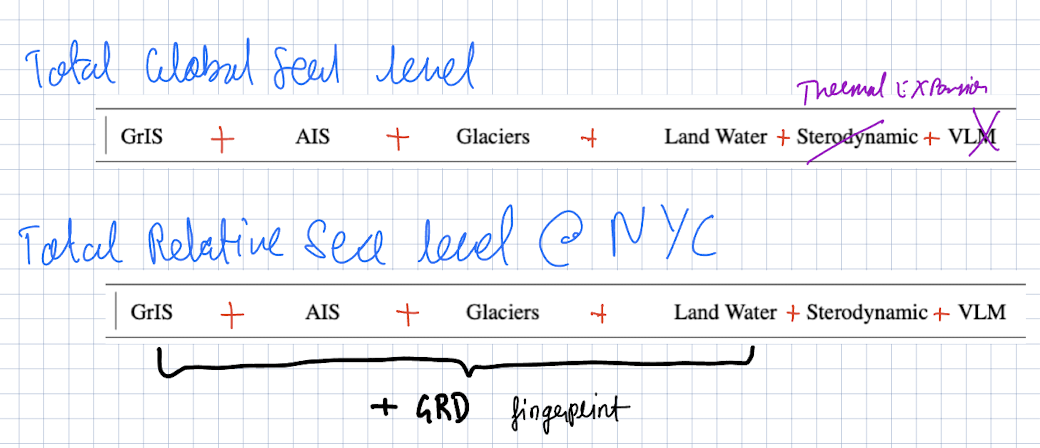 Total Global Sea level
Thermal Expansion
GrIS + AIS + Glaciers + Land Water + Sterodynamic + VLM
Total Relative Sea level @ NYC
GrIS + AIS + Glaciers + Land Water + Sterodynamic + VLM
+ GRD fingerprint